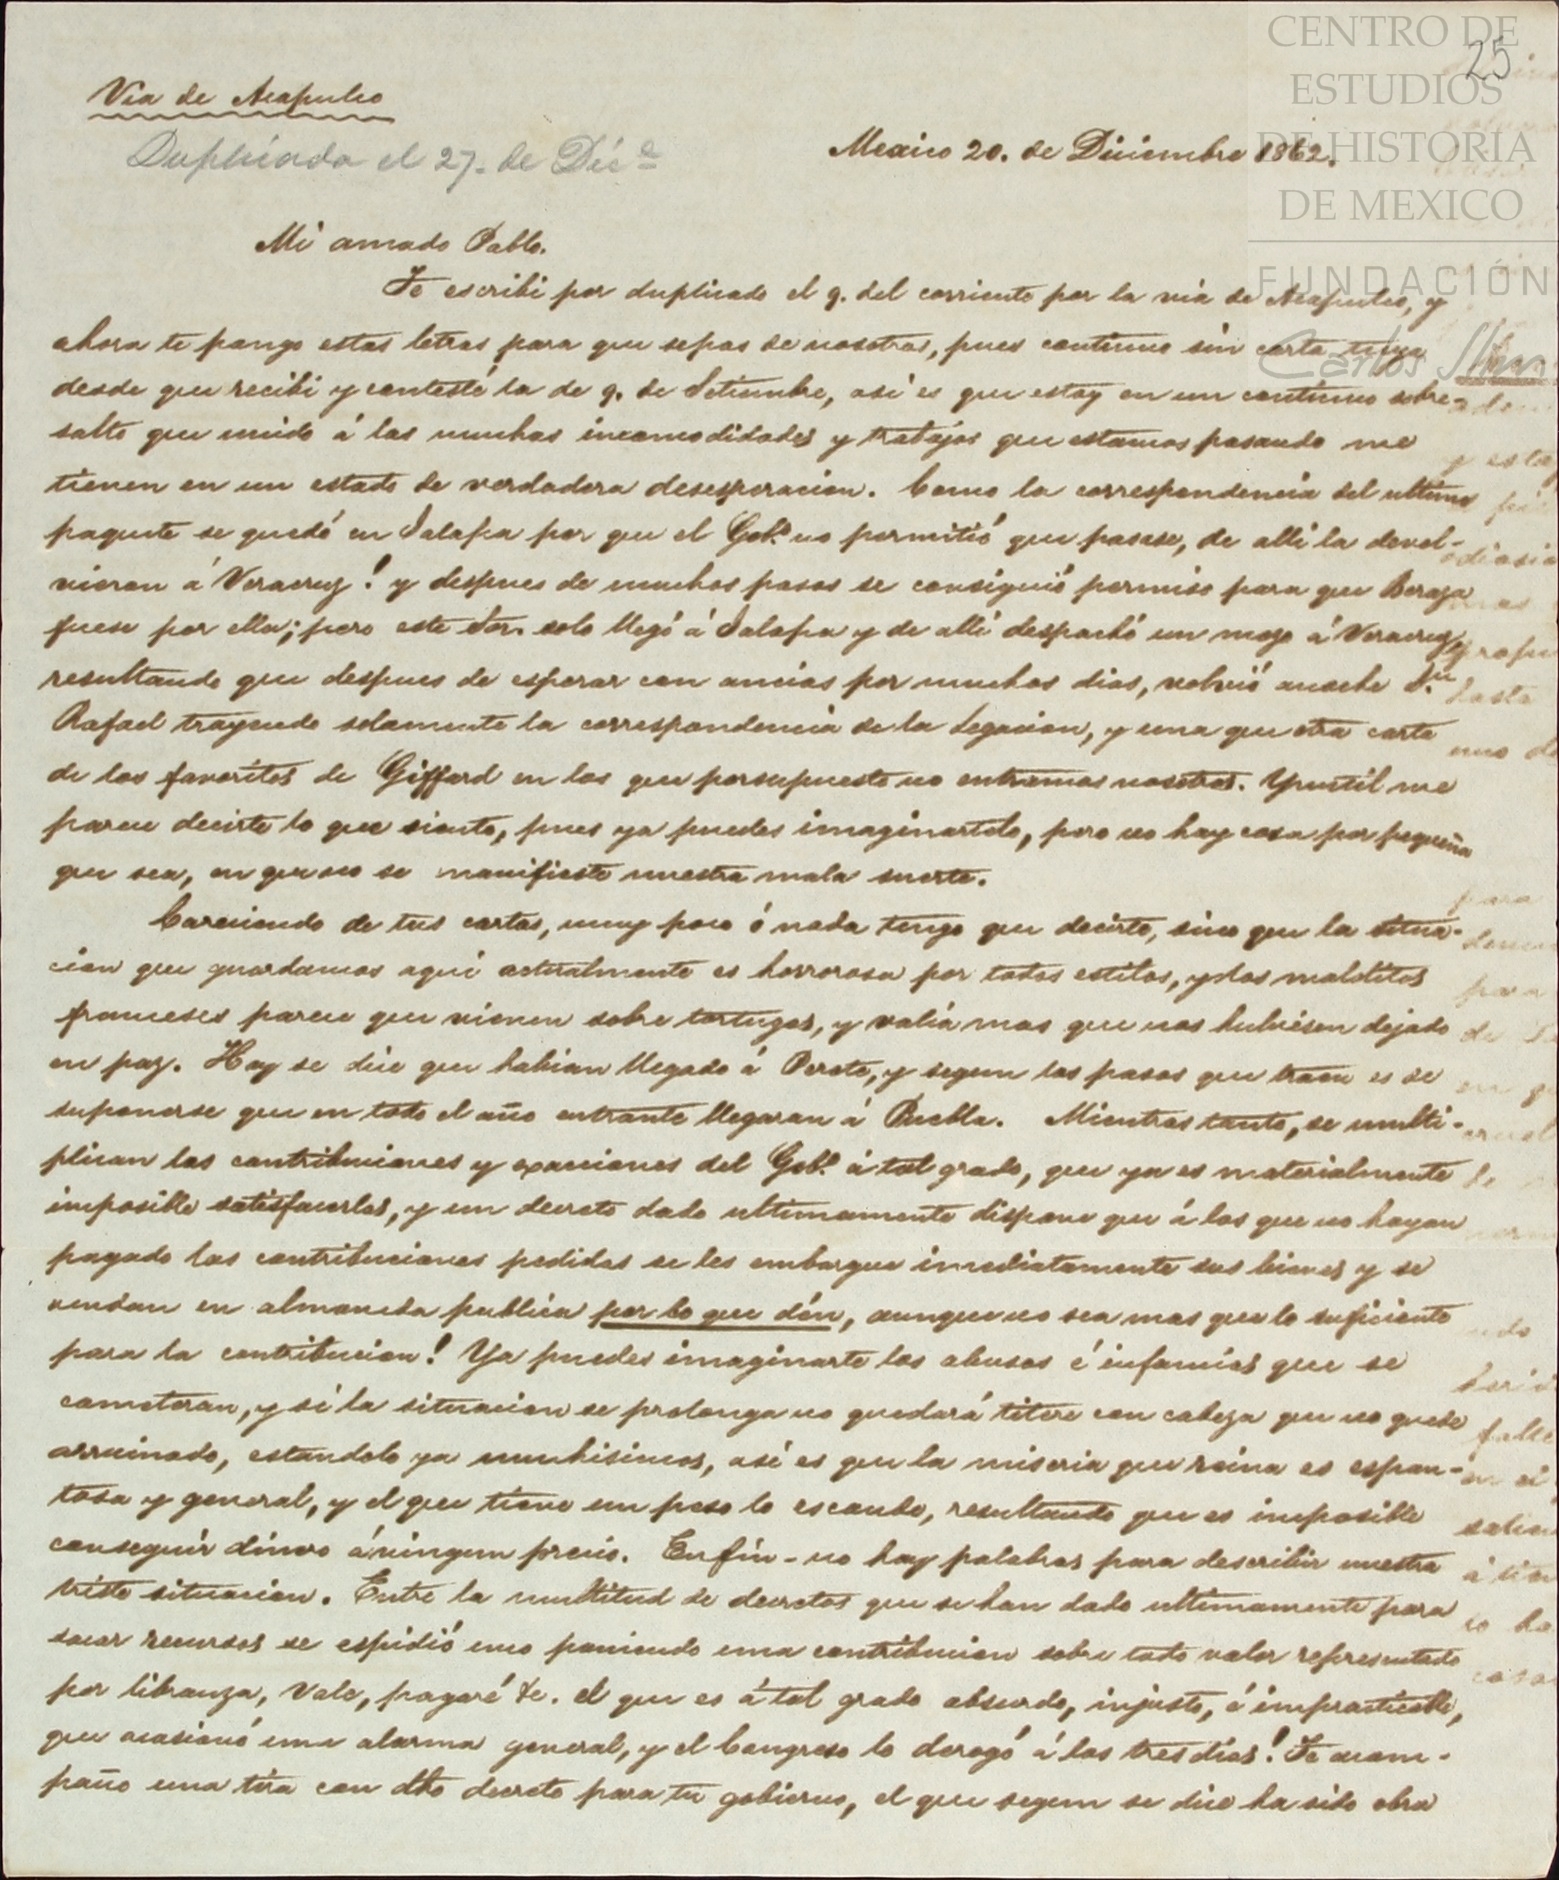 CENTRO DE
ESTUDIOS
DE HISTORIA
DE MEXICO
FUNDACIÓN
Carlos Slim
25
Via de Acapulco
Duplicada el 27. de Dice
Mexico 20. de Diciembre 1862.
Mi amado Pablo.
Te escribi por duplicado el 9. del corriente por la via de Acapulco, y
ahora te pongo estas letras para que sepas de nosotros, pues continuo sin carta tuya
desde que recibi y contesté la de 9. de Setiembre, asi es que estoy en un continuo sobre-
salto que unido á las muchas incomodidades y trabajos que estamos pasando me
tienen en un estado de verdadera desesperacion. Como la correspondencia del ultimo
paquete se quedó en Jalapa por que el Gob.º no permitió que pasase, de alli la devol-
vieron á Veracruz! y despues de muchos pasos se consiguió permiso para que Beraza
fuese por ella; pero este Sor. solo llegó á Jalapa y de alli despachó un mozo á Veracruz,
resultando que despues de esperar con ancias por muchos dias, volvió anoche Dn.
Rafael trayendo solamente la correspondencia de la Legacion, y una que otra carta
de los favoritos de Giffard en los que por supuesto no entramos nosotros. Ynutil me
parece decirte lo que siento, pues ya puedes imaginartelo, pero no hay cosa por pequeña
que sea, en que no se manifieste nuestra mala suerte.
Careciendo de tus cartas, muy poco ó nada tengo que decirte, sino que la situa-
cion que guardamos aqui actualmente es horrorosa por todos estilos, y los malditos
franceses parece que vienen sobre tortugas, y valia mas que nos hubiesen dejado
en paz. Hoy se dice que habian llegado á Perote, y segun los pasos que traen es de
suponerse que en todo el año entrante llegaran á Puebla. Mientras tanto, se multi-
plican las contribuciones y exacciones del Gob.º á tal grado, que ya es materialmente
imposible satisfacerlas, y un decreto dado ultimamente dispone que á los que no hayan
pagado las contribuciones pedidas se les embargue inmediatamente sus bienes y se
vendan en almoneda publica por lo que dén, aunque no sea mas que lo suficiente
para la contribucion! Ya puedes imaginarte los abusos é infamias que se
cometeran, y si la situacion se prolonga no quedará titere con cabeza que no quede
arruinado, estandolo ya muchisimos, asi es que la miseria que reina es espan-
tosa y general, y el que tiene un peso lo esconde, resultando que es imposible
conseguir dinero á ningun precio. En fin - no hay palabras para describir nuestra
triste situacion. Entre la multitud de decretos que se han dado ultimamente para
sacar recursos se espidió uno poniendo una contribucion sobre todo valor representado
por libranza, vale, pagaré &c. el que es á tal grado absurdo, injusto, é impracticable,
que ocasionó una alarma general, y el Congreso lo derogó á los tres dias! Te acom-
paño una tira con dho decreto para tu gobierno, el que segun se dice ha sido obra